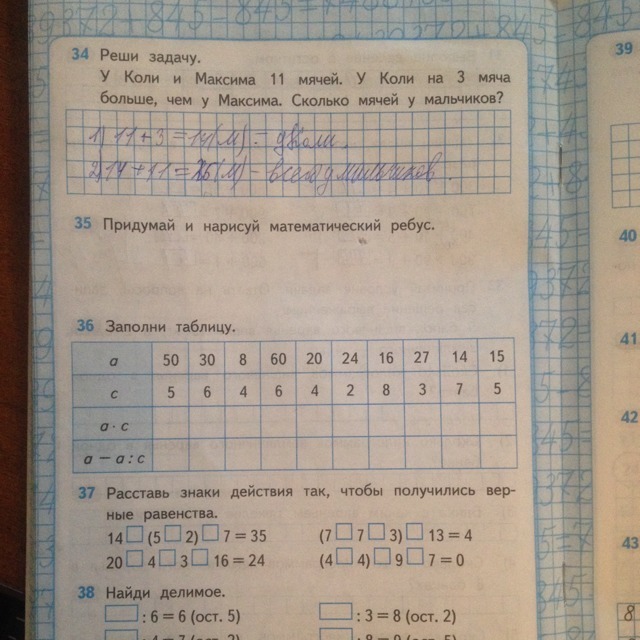 34 Реши задачу.
У Коли и Максима 11 мячей. У Коли на 3 мяча
больше, чем у Максима. Сколько мячей у мальчиков?
1) 11+3=14(м) – у Коли.
2) 14+11=25(м) – всего у мальчиков.
35 Придумай и нарисуй математический ребус.
36 Заполни таблицу.
a 50 30 8 60 20 24 16 27 14 15
c 5 6 4 6 4 2 8 3 7 5
a · c
a – a : c
37 Расставь знаки действия так, чтобы получились вер-
ные равенства.
14 □ (5 □ 2) □ 7 = 35 (7 □ 7 □ 3) □ 13 = 4
20 □ 4 □ 3 □ 16 = 24 (4 □ 4) □ 9 □ 7 = 0
38 Найди делимое.
□ : 6 = 6 (ост. 5) □ : 3 = 8 (ост. 2)
39
40
41
42
43
8